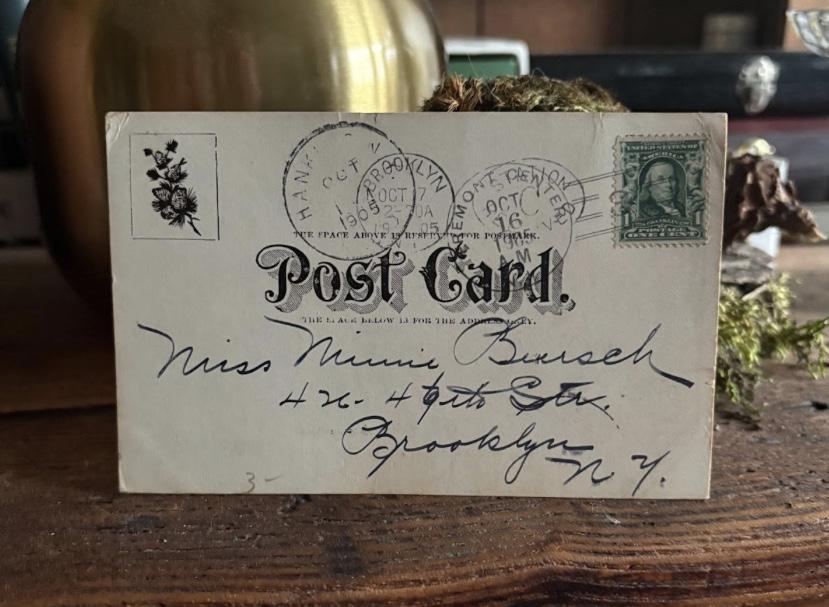 HANK OCT 1905
BROOKLYN OCT 7 1905
FREMONT CENTER OCT 16 AM
UNITED STATES OF AMERICA
1 POSTAGE 1
ONE CENT
THE SPACE ABOVE IS RESERVED FOR POSTMARK.
Post Card.
THE SPACE BELOW IS FOR THE ADDRESS ONLY.
Miss Minnie
426- 4 Str.
Brooklyn
N.Y.
3-